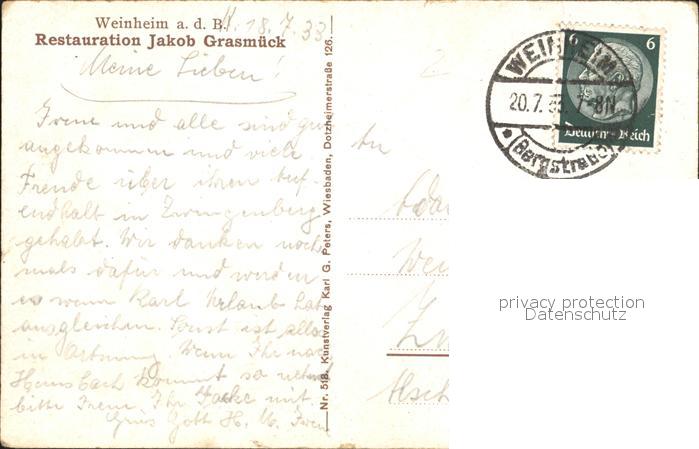 Weinheim a. d. B.
18.7.33
Restauration Jakob Grasmück
Meine Lieben!
Irene und alle sind gut
angekommen und viele
Freude über ihren Auf-
endhalt in Zwingenberg
gehabt. Wir danken noch
mals dafür und werden
es wenn Karl Urlaub hat
ausgleichen. Sonst ist alles
in Ortnung. Wenn Ihr nach
Hemsbach kommt so nehmt
bitte Irene Ihr Jacke mit.
Grus Gott H. M. Irene
Nr. 518. Kunstverlag Karl G. Peters, Wiesbaden, Dotzheimerstraße 126.
An
WEINHEIM
20.7.33. 7-8N
(Bergstraße)
6 6
Deutsches Reich
privacy protection
Datenschutz